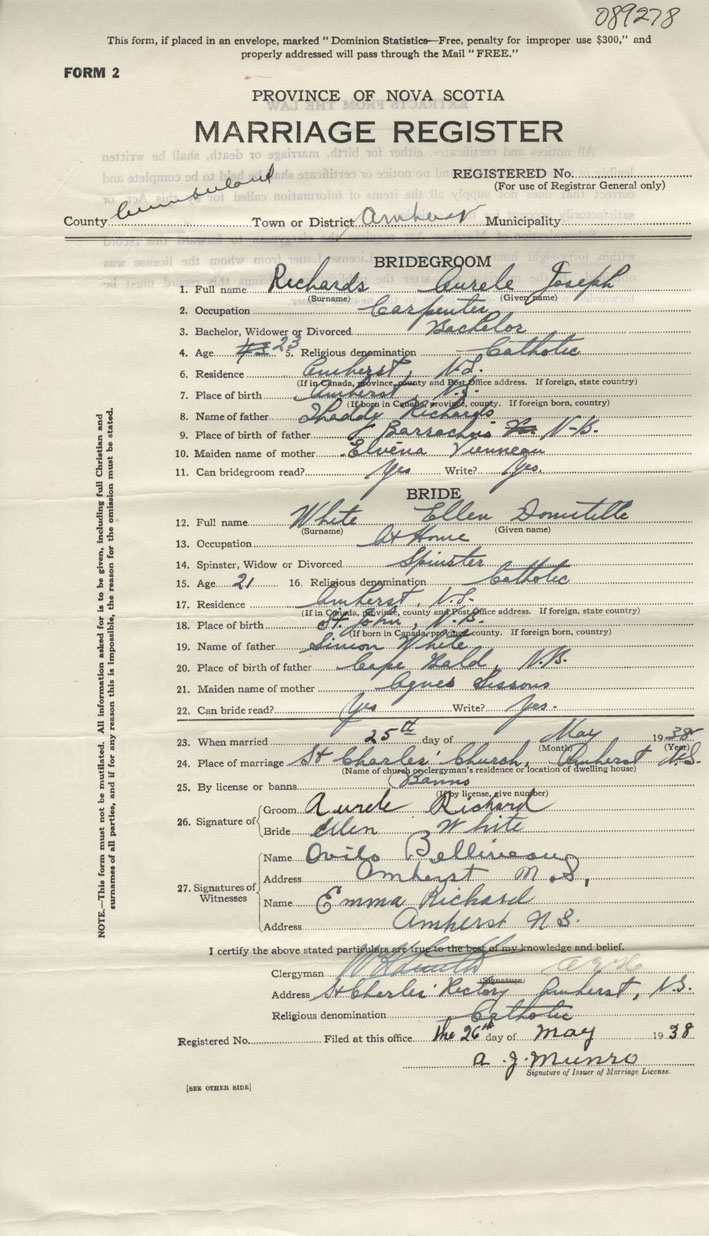 089278
This form, if placed in an envelope, marked "Dominion Statistics—Free, penalty for improper use $300," and
properly addressed will pass through the Mail "FREE."
FORM 2
PROVINCE OF NOVA SCOTIA
MARRIAGE REGISTER
REGISTERED No.
(For use of Registrar General only)
County Cumberland Town or District Amherst Municipality
BRIDEGROOM
1. Full name Richards Aurele Joseph
(Surname) (Given name)
2. Occupation Carpenter
3. Bachelor, Widower or Divorced Bachelor
4. Age 23 5. Religious denomination Catholic
6. Residence Amherst, N.S.
(If in Canada, province, county and Post Office address. If foreign, state country)
7. Place of birth Amherst N.S.
(If born in Canada, province, county. If foreign born, country)
8. Name of father Thaddy Richards
9. Place of father Barrachois N-B.
10. Maiden name of mother Elvéna Vienneau
11. Can bridegroom read? Yes Write? Yes.
BRIDE
12. Full name White Ellen Domitille
(Surname) (Given name)
13. Occupation At Home
14. Spinster, Widow or Divorced Spinster
15. Age 21 16. Religious denomination Catholic
17. Residence Amherst, N.S.
(If in Canada, province, county and Post Office address. If foreign, state country)
18. Place of birth St. John, N.B.
(If born in Canada, province, county. If foreign born, country)
19. Name of father Simon White
20. Place of birth of father Cape Bald, N.B.
21. Maiden name of mother Agnes Sissons
22. Can bride read? Yes Write? Yes.
23. When married 25th day of May 1938
(Month) (Year)
24. Place of marriage St Charles' Church, Amherst N.S.
(Name of church or clergyman's residence or location of dwelling house)
25. By license or banns Banns
(If by license, give number)
26. Signature of
Groom Aurele Richard
Bride Ellen White
27. Signatures of Witnesses
Name Ovila Belliveau
Address Amherst N.S.
Name Emma Richard
Address Amherst N.S.
I certify the above stated particulars are true to the best of my knowledge and belief.
Clergyman
(Signature)
Address St Charles' Rectory Amherst, N.S.
Religious denomination Catholic
Registered No. Filed at this office the 26th day of May 1938
A. J. Munro
Signature of Issuer of Marriage License
[SEE OTHER SIDE]
NOTE.—This form must not be mutilated. All information asked for is to be given, including full Christian and
surnames of all parties, and if for any reason this is impossible, the reason for the omission must be stated.